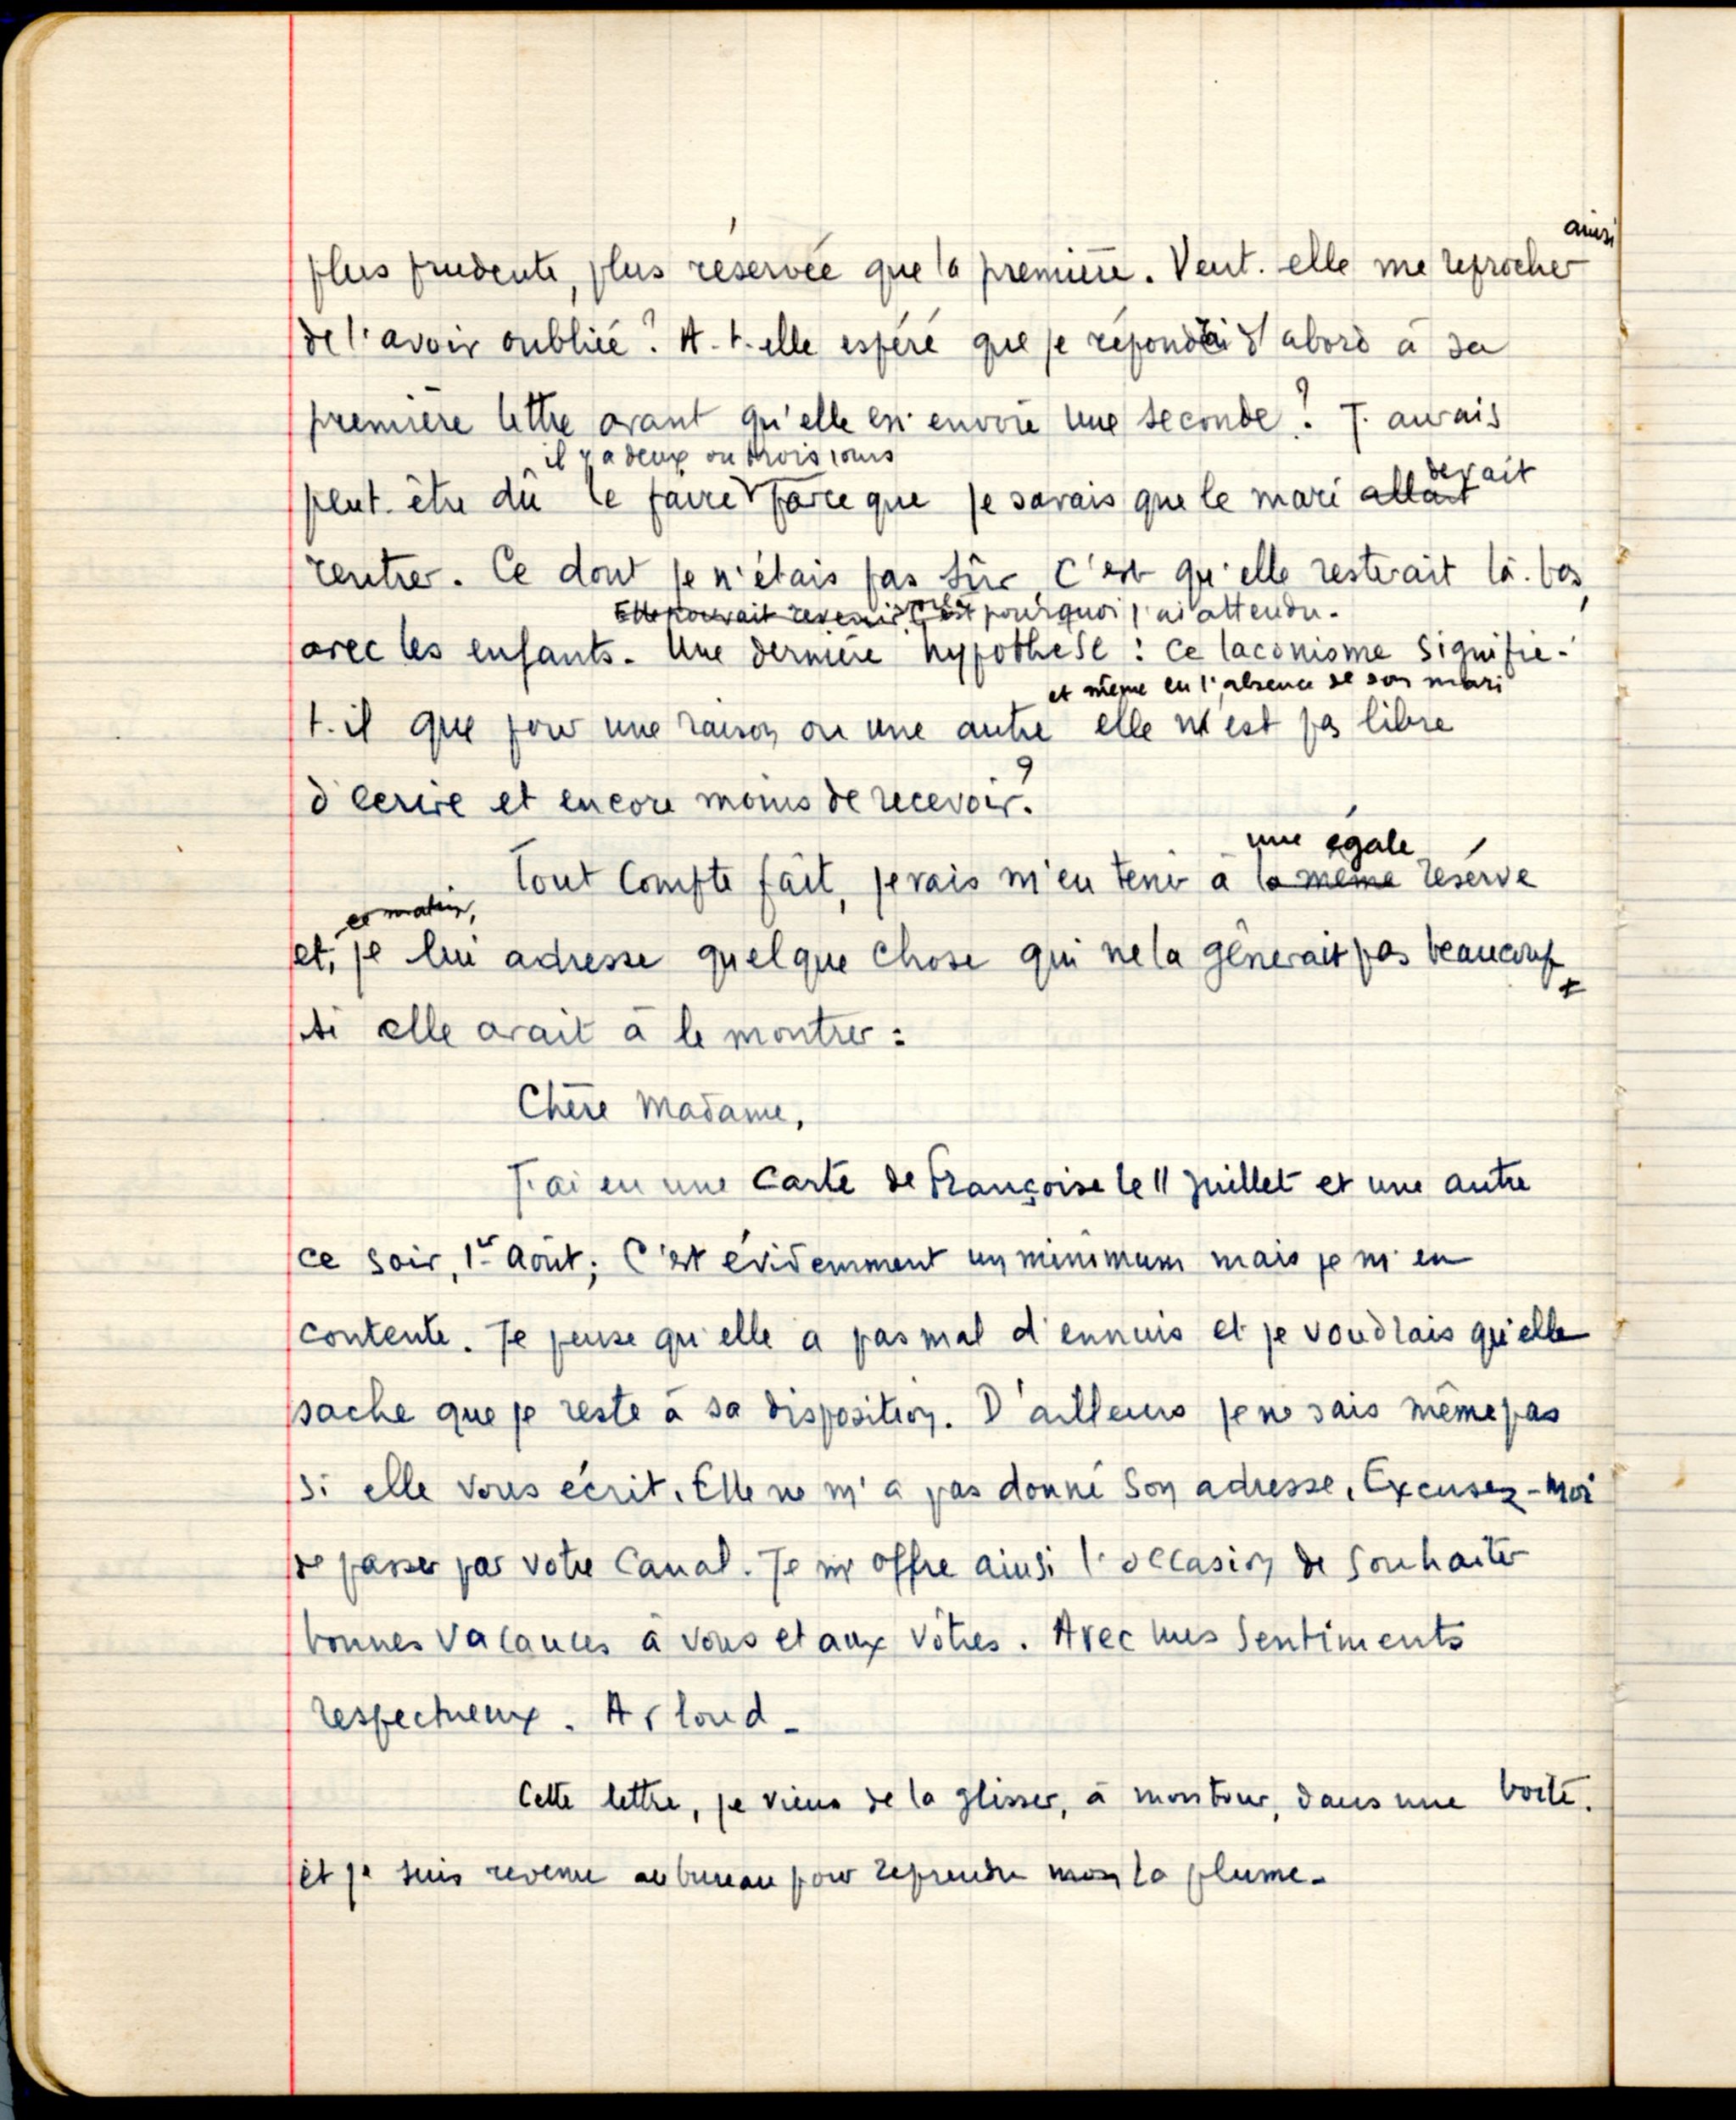 ainsi
plus prudente, plus réservée que la première. Veut-elle me reprocher
de l'avoir oubliée ? A-t-elle espéré que je répondrai d'abord à sa
première lettre avant qu'elle en envoie une seconde ? J'aurais
il y a deux ou trois jours
devait
peut-être dû le faire parce que je savais que le mari allait
rentrer. Ce dont je n'étais pas sûr, c'est qu'elle resterait là-bas,
Elle pouvait revenir. pourquoi j'ai attendu.
avec les enfants. Une dernière hypothèse : ce laconisme signifie-
et même en l'absence de son mari
t-il que pour une raison ou une autre elle n'est pas libre
d'écrire et encore moins de recevoir ?
une égale
Tout compte fait, je vais m'en tenir à la même réserve
ce matin,
et, je lui adresse quelque chose qui ne la gênerait pas beaucoup
si elle avait à le montrer :
Chère Madame,
J'ai eu une carte de Françoise le 11 juillet et une autre
ce soir, 1er Août ; C'est évidemment un minimum mais je m'en
contente. Je pense qu'elle a pas mal d'ennuis et je voudrais qu'elle
sache que je reste à sa disposition. D'ailleurs je ne sais même pas
si elle vous écrit. Elle ne m'a pas donné son adresse. Excusez-moi
de passer par votre canal. Je m'offre ainsi l'occasion de souhaiter
bonnes vacances à vous et aux vôtres. Avec mes sentiments
respectueux. Arloud_
Cette lettre, je viens de la glisser, à mon tour, dans une boîte.
et je suis revenu au bureau pour reprendre mon la plume.